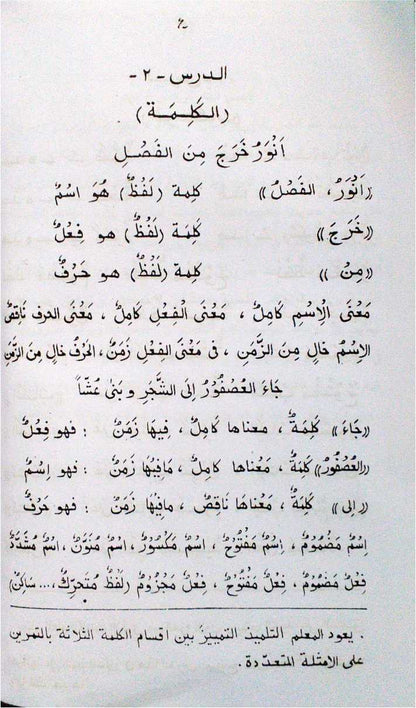 الدرس -٢-
(الكَلِمَة)
اَنوَرُ خَرَجَ مِنَ الفَصْلِ
((اَنوَرُ، الفَصْلُ)) كَلِمة (لَفْظٌ) هُوَ اسْمٌ
((خَرَجَ)) كَلِمَة (لَفْظٌ) هو فِعْلٌ
((مِنْ)) كَلِمة (لَفْظٌ) هو حَرْفٌ
مَعْنَى الاِسْمِ كَامِلٌ، مَعْنَى الْفِعْلِ كَامِلٌ، مَعْنَى الحرف نَاقِصٌ
الاِسْمُ خالٍ مِنَ الزَّمَنِ، فى مَعْنَى الفِعْلِ زَمَنٌ، الحَرْفُ خالٍ مِنَ الزَّمَنِ
جَاءَ العُصْفُوْرُ اِلَى الشَّجَرِ وبَنىٰ عُشًّا
((جَاءَ)) كَلِمَةٌ، معناها كَامِلٌ، فِيهَا زَمَنٌ : فهو فِعْلٌ
((العُصْفُوْرُ)) كَلِمَةٌ، مَعْنَاها كَامِلٌ، مَافِيْهَا زَمَنٌ : فهو اِسْمٌ
((اِلى)) كَلِمَةٌ، مَعْنَاهَا نَاقِصٌ، مافِيْهَا زَمَنٌ : فهو حَرْفٌ
اِسْمٌ مَضْمُوْمٌ، اِسْمٌ مَفْتُوْحٌ، اسْمٌ مَكْسُوْرٌ، اسْمٌ مُنَوَّنٌ، اسْمٌ مُشَدَّدٌ
فِعْلٌ مَضْمُوْمٌ، فِعْلٌ مَفْتُوْحٌ، فِعْلٌ مَجْزُوْمٌ (لَفْظٌ مُتَحَرِّكٌ،... سَاكِنٌ)
. يعود المعلم التلميذ التمييز بين اقسام الكلمة الثلاثة بالتمرين
على الامثلة المتعددة.